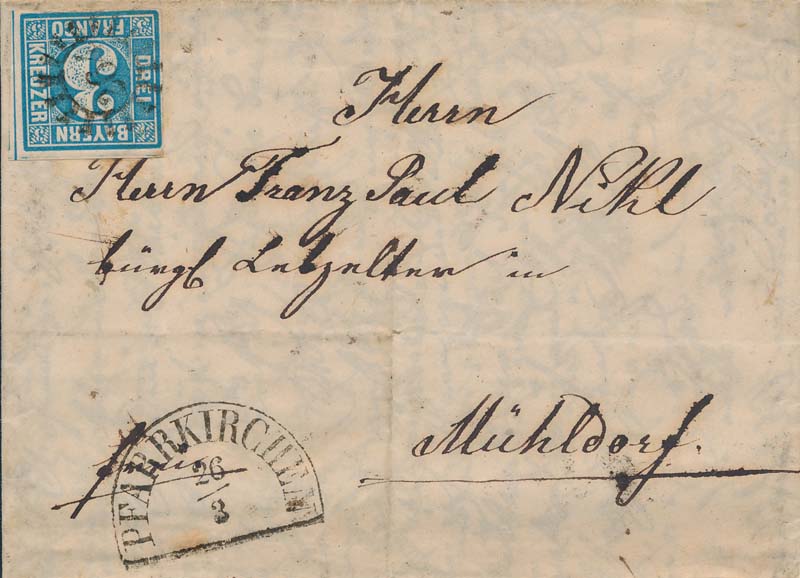 FRANCO
DREI
KREUZER
3
BAYERN
Herrn
Herrn Franz Paul Nikl
bürgl Lebzelter in
Mühldorf.
frei
PFARRKIRCHEN
26
3